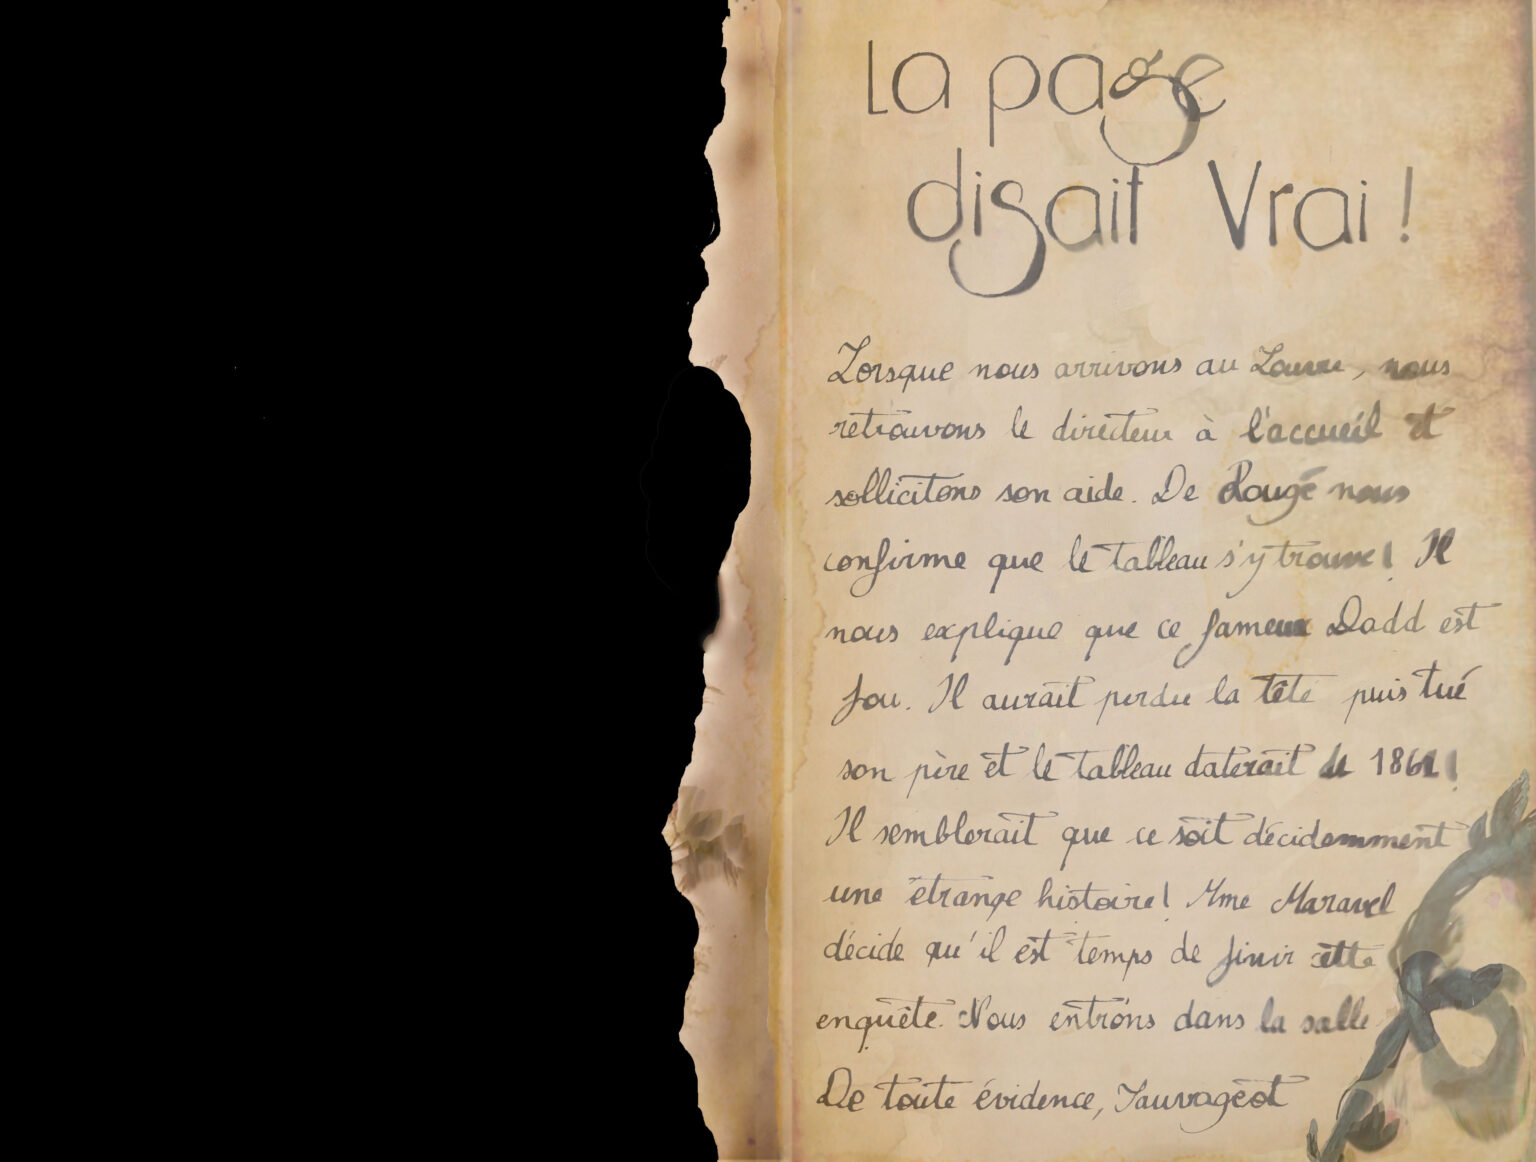 La page
disait Vrai !
Lorsque nous arrivons au Louvre, nous
retrouvons le directeur à l'accueil et
sollicitons son aide. De Rougé nous
confirme que le tableau s'y trouve ! Il
nous explique que ce fameux Dadd est
fou. Il aurait perdu la tête puis tué
son père et le tableau daterait de 1861 !
Il semblerait que ce soit décidemment
une étrange histoire ! Mme Maravel
décide qu'il est temps de finir cette
enquête. Nous entrons dans la salle
De toute évidence, Sauvageot